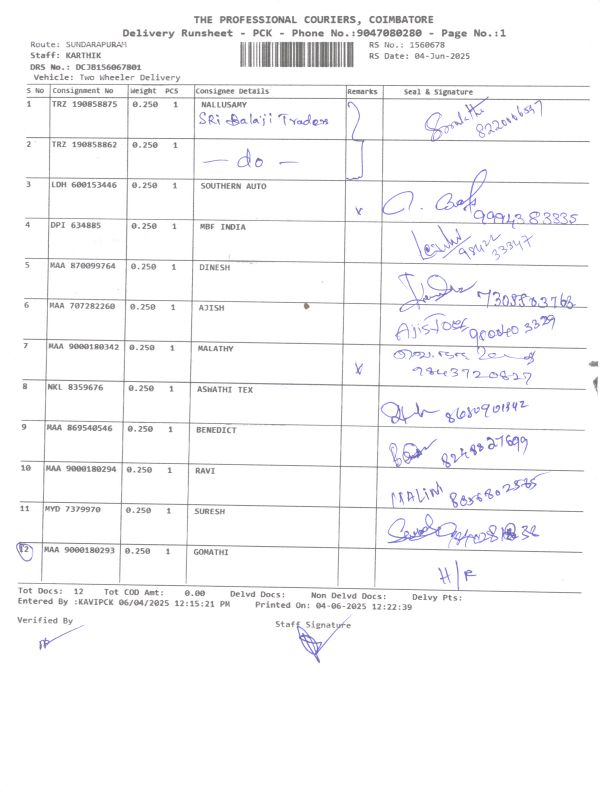 THE PROFESSIONAL COURIERS, COIMBATORE
Delivery Runsheet - PCK - Phone No.:9047080280 - Page No.:1
Route: SUNDARAPURAM RS No.: 1560678
Staff: KARTHIK RS Date: 04-Jun-2025
DRS No.: DCJB156067801
Vehicle: Two Wheeler Delivery
S No Consignment No Weight PCS Consignee Details Remarks Seal & Signature
1 TRZ 190858875 0.250 1 NALLUSAMY
SRi Balaji Traders
2 TRZ 190858862 0.250 1
— do —
3 LDH 600153446 0.250 1 SOUTHERN AUTO
9994383335
4 DPI 634885 0.250 1 MBF INDIA
98422
33347
5 MAA 870099764 0.250 1 DINESH
6 MAA 707282260 0.250 1 AJISH
7 MAA 9000180342 0.250 1 MALATHY
9843720827
8 NKL 8359676 0.250 1 ASWATHI TEX
9 MAA 869540546 0.250 1 BENEDICT
8248827699
10 MAA 9000180294 0.250 1 RAVI
MALINI
11 MYD 7379970 0.250 1 SURESH
12 MAA 9000180293 0.250 1 GOMATHI
H/F
Tot Docs: 12 Tot COD Amt: 0.00 Delvd Docs: Non Delvd Docs: Delvy Pts:
Entered By :KAVIPCK 06/04/2025 12:15:21 PM Printed On: 04-06-2025 12:22:39
Verified By Staff Signature